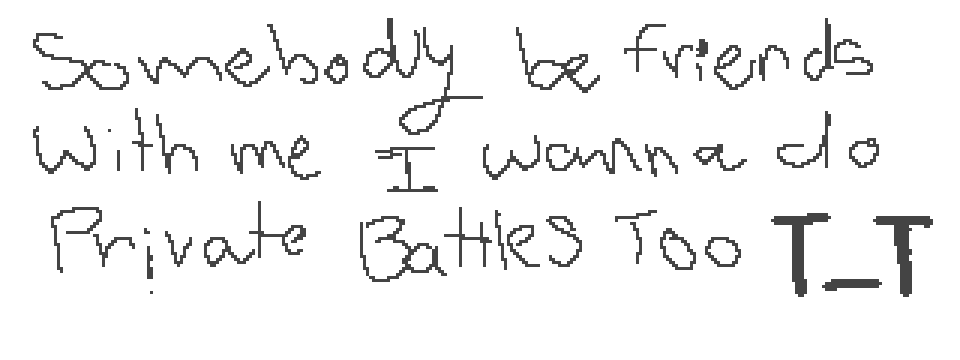 Somebody be friends
with me I wanna do
Private Battles Too T_T